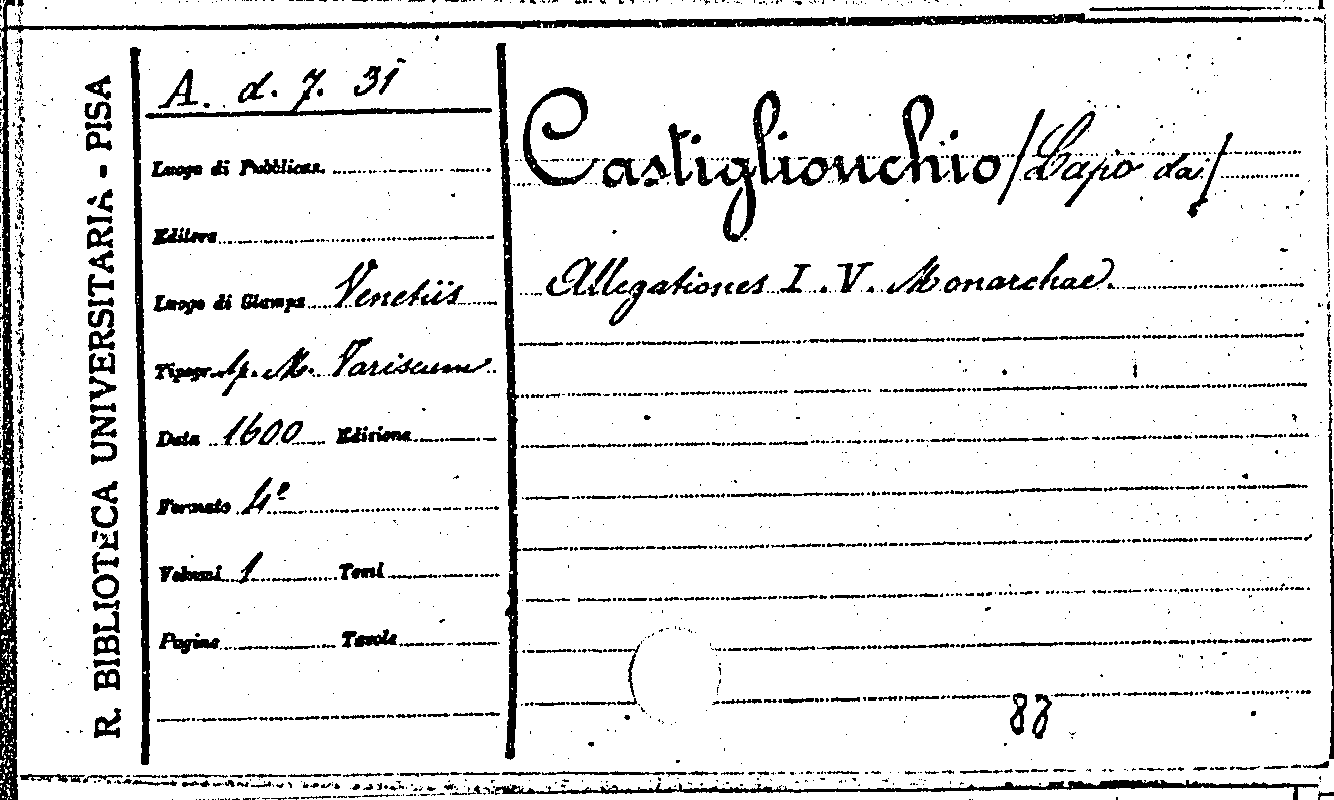 R. BIBLIOTECA UNIVERSITARIA - PISA
A. d. 7. 31
Luogo di Pubblicaz.
Editore
Luogo di Stampa Venetiis
Tipogr. Ap. M. Variscum
Data 1600 Edizione
Formato 4º
Volumi 1 Tomi
Pagine Tavole
Castiglionchio /Lapo da/
Allegationes I. V. Monarchae.
88